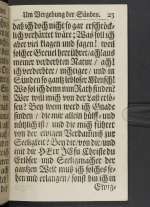 Um Vergebung der Sünden. 23
daß ich doch nicht so gar erschröck-
lich verhärtet wäre; Was soll ich
aber viel klagen und sagen! weil
solcher Greuel herrühret/ ach! aus
meiner verderbten Natur/ ach!
ich verderbter/ nichtiger/ und in
Sünden so gantz lebloser Mensch!
Wo sol ich denn nun Rath finden?
Wer wil mich von der Last erlö-
sen? Bey wem werd ich Gnade
finden/ die mir allein hülff- und
nützlich ist/ und die mich führen
von der ewigen Verdammniß zur
Seeligkeit? Bey dir/ von dir/ und
mit dir HErr JEsu Christe du
Erlöser und Seeligmacher der
gantzen Welt muß ich solches su-
chen und erlangen/ sonst bin ich in
Ewig-